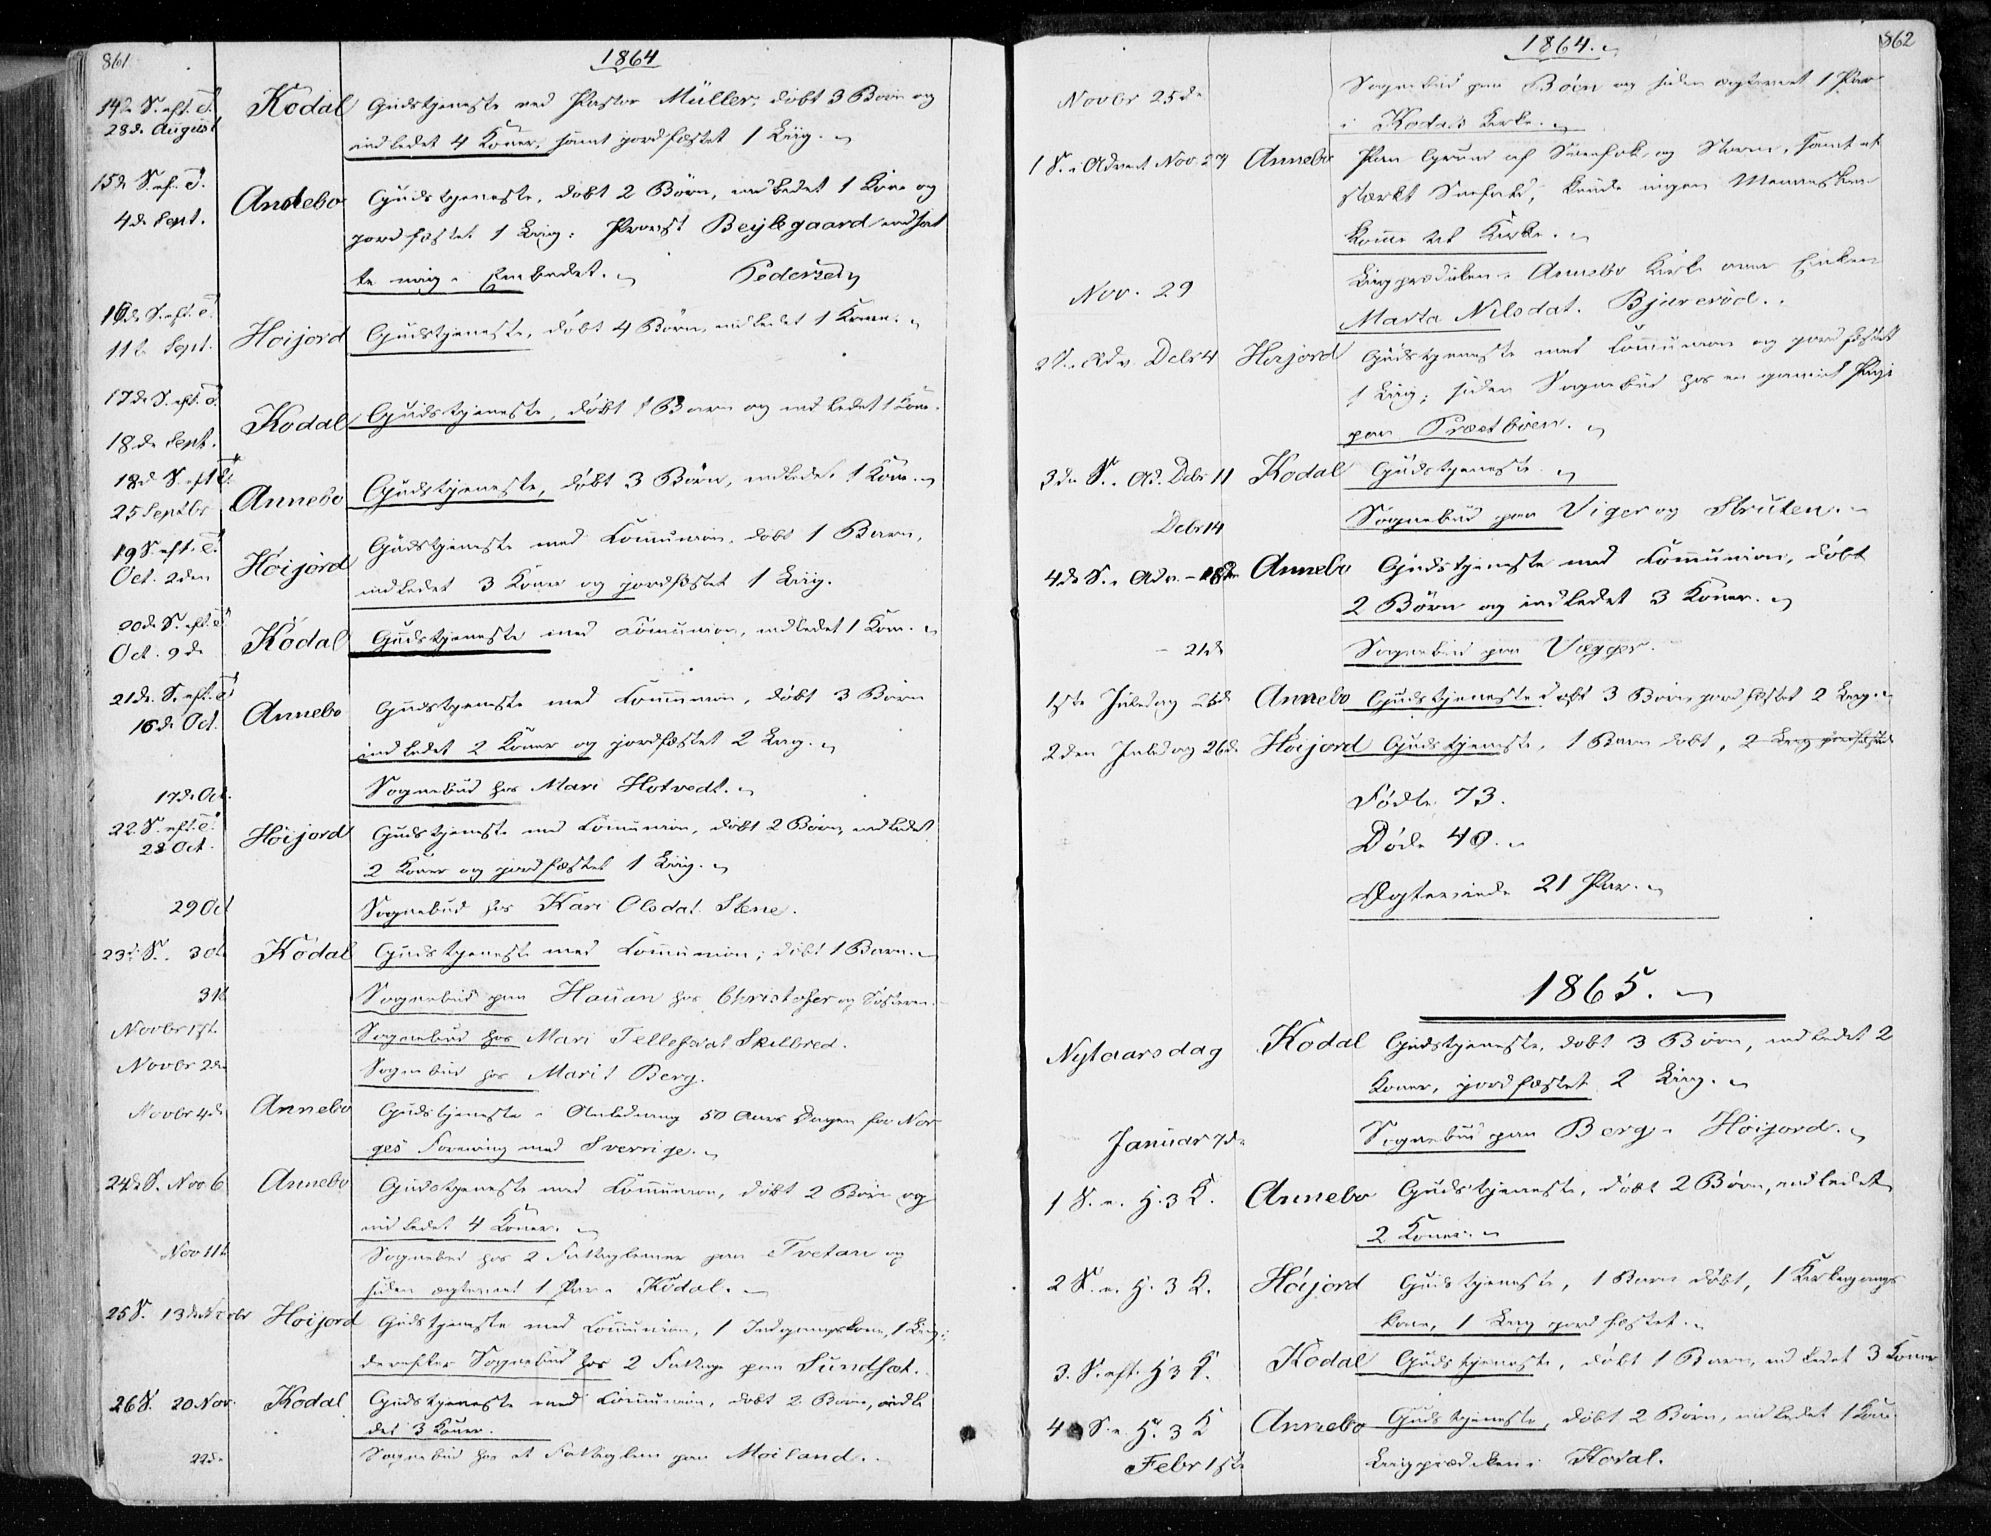 861
1864
14de S. eft. T.
28de August
Kodal
Gudstjeneste ved Pastor Müller; døbt 3 Børn og
indledet 4 Koner, samt jordfæstet 1 Liig.
15de S. ef. T.
4de Sept.
Andebo
Gudstjeneste, døbt 2 Børn, indledet 1 Kone og
jordfæstet 1 Liig; Provst Bejlegaard indsat
te mig i Embedet. Pedersen
16de S. eft. T.
11te Sept.
Høijord
Gudstjeneste, døbt 4 Børn, indledet 1 Kone.
17de S. eft. T.
18de Sept.
Kodal
Gudstjeneste, døbt 1 Barn og indledet 1 Kone.
18de S. eft T.
25 Septbr
Annebo
Gudstjeneste, døbt 3 Børn, indledet 1 Kone.
19 S. eft. T.
Oct. 2den
Høijord
Gudstjeneste med Communion, døbt 1 Barn,
indledet 3 Koner og jordfæstet 1 Liig.
20de S. eft. T.
Oct. 9de
Kodal
Gudstjeneste med Communion, indledet 1 Kone.
21de S. eft. T.
16de Oct.
Annebo
Gudstjeneste med Communion, døbt 3 Børn
indledet 2 Koner og jordfæstet 2 Liig.
17de Oct.
Sognebud hos Mari Hotvedt.
22. S. eft. T.
23 Oct.
Høijord
Gudstjeneste med Communion, døbt 2 Børn, indledet
2 Koner og jordfæstet 1 Liig.
29 Oct
Sognebud hos Kari Olsdat. Stene.
23de S. 30te
Kodal
Gudstjeneste med Communion; døbt 1 Barn.
31te
Sognebud paa Hauan hos Christofer og Søsteren.
Novbr 1ste
Sognebud hos Mari Tellefsdat Skilbred.
Novbr 2den
Sognebud hos Marit Berg.
Novbr 4de
Annebo
Gudstjeneste i Anledning 50 Aars Dagen for Nor
ges Forening med Sverrige.
24de S. Nov 6
Annebo
Gudstjeneste med Communion, døbt 2 Børn og
indledet 4 Koner.
Nov 11te
Sognebud hos 2 Fattiglemmer paa Tvetan og
siden ægteviet 1 Par i Kodal.
25 S. 13de Novbr
Høijord
Gudstjeneste med Communion, 1 Indgangskone, 1 Liig;
derefter Sognebud hos 2 Fattige paa Sundset.
26 S. 20 Nov.
Kodal
Gudstjeneste med Communion, døbt 2 Børn, indle
det 3 Koner.
22de
Sognebud hos et Fattiglem paa Møiland.
862
1864.
Novbr 25de
Sognebud paa Bøen og siden ægteviet 1 Par
i Kodals Kirke.
1 S. i Advent Nov. 27
Annebo
Paa Grund af Sneefok, og Storm, samt et
stærkt Sneefald, kunde ingen Mennesker
komme til Kirke.
Nov. 29
Liigprædiken i Annebo Kirke over Enken
Marta Nilsdat. Bjuerød.
2 S. i Adv. Debr 4
Høijord
Gudstjeneste med Communion og jordfæstet
1 Liig; siden Sognebud hos en gammel Pige
paa Præstbøen.
3die S. i Ad. Debr 11
Kodal
Gudstjeneste.
Debr 14
Sognebud paa Viger og Struten.
4de S. i Adv. - 18de
Annebo
Gudstjeneste med Communion, døbt
2 Børn og indledet 3 Koner.
- 21de
Sognebud paa Vegger.
1ste Juledag 25de
Annebo
Gudstjeneste døbt 3 Børn, jordfæstet 2 Liig.
2den Juledag 26de
Høijord
Gudstjeneste, 1 Barn døbt, 2 Liig jordfæstede
Fødte 73.
Døde 40.
Ægteviede 21 Par.
1865.
Nytaarsdag
Kodal
Gudstjeneste, døbt 3 Børn, indledet 2
Koner, jordfæstet 2 Liig.
Januar 7de
Sognebud paa Berg i Høijord.
1 S. e. H. 3 K.
Annebo
Gudstjeneste, døbt 2 Børn, indledet
2 Koner.
2 S. e. H. 3 K.
Høijord
Gudstjeneste, 1 Barn døbt, 1 Kirkegangs
kone, 1 Liig jordfæstet.
3. S. eft. H 3 K.
Kodal
Gudstjeneste, døbt 1 Barn, indledet 3 Koner
4 S. e. H. 3 K
Annebo
Gudstjeneste, døbt 2 Børn, indledet 1 Kone.
Febr 1ste
Liigprædiken i Kodal.